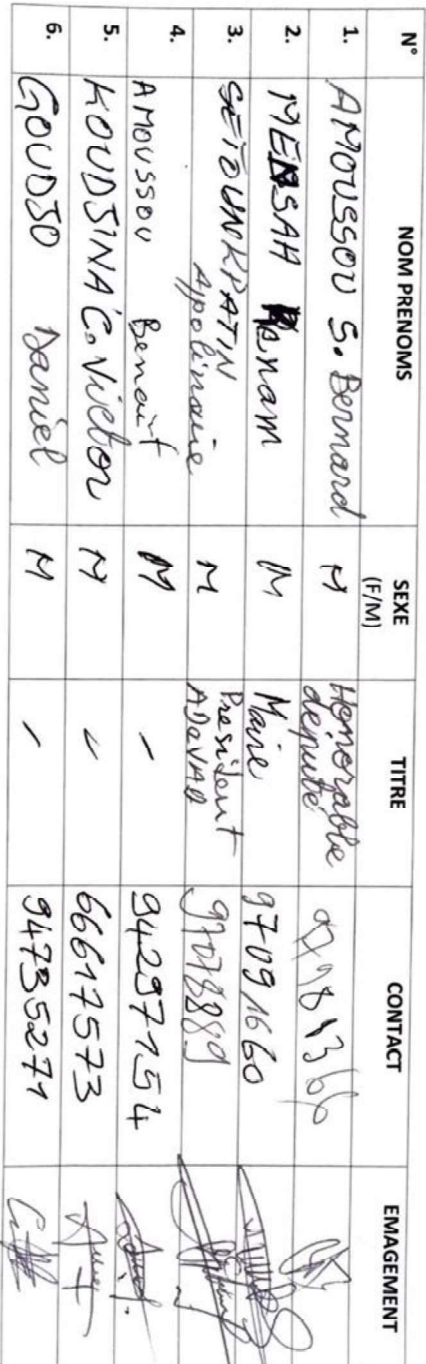 N° NOM PRENOMS SEXE (F/M) TITRE CONTACT EMAGEMENT
1. AMOUSSOU S. Bernard M Honorable député
2. MENSAH M Maire 97091660
3. SETOUNKPATIN Apolinaire M President 97078889
4. AMOUSSOU Benoit M - 94297154
5. KOUDJINA C. Victor M 66617573
6. GOUDJO Daniel M - 94735271